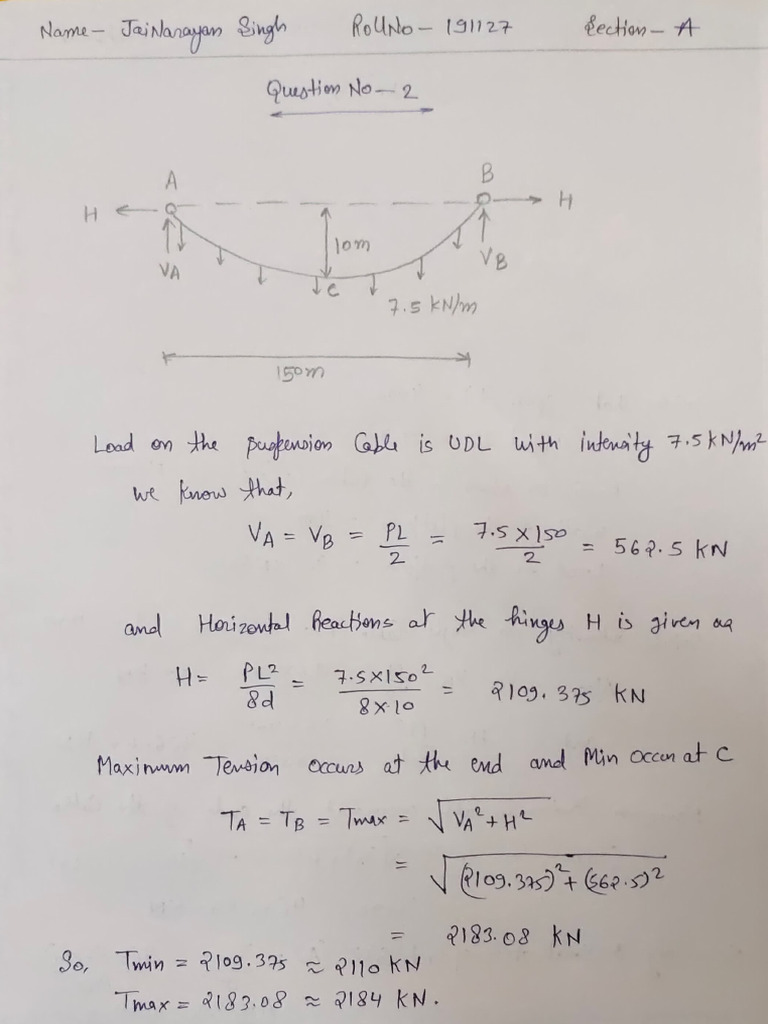 Name- JaiNarayan Singh RollNo- 191127 Section- A
Question No- 2
A B
H H
10m
VA VB
C
7.5 kN/m
150m
Load on the suspension Cable is UDL with intensity 7.5kN/m²
we know that,
VA = VB = PL/2 = 7.5 X 150/2 = 562.5 KN
and Horizontal Reactions at the hinges H is given as
H = PL²/8d = 7.5X150²/8X10 = 2109.375 KN
Maximum Tension occurs at the end and Min Occur at C
TA = TB = Tmax = √VA² + H²
= √(2109.375)² + (562.5)²
= 2183.08 KN
So, Tmin = 2109.375 ≈ 2110 KN
Tmax = 2183.08 ≈ 2184 KN.